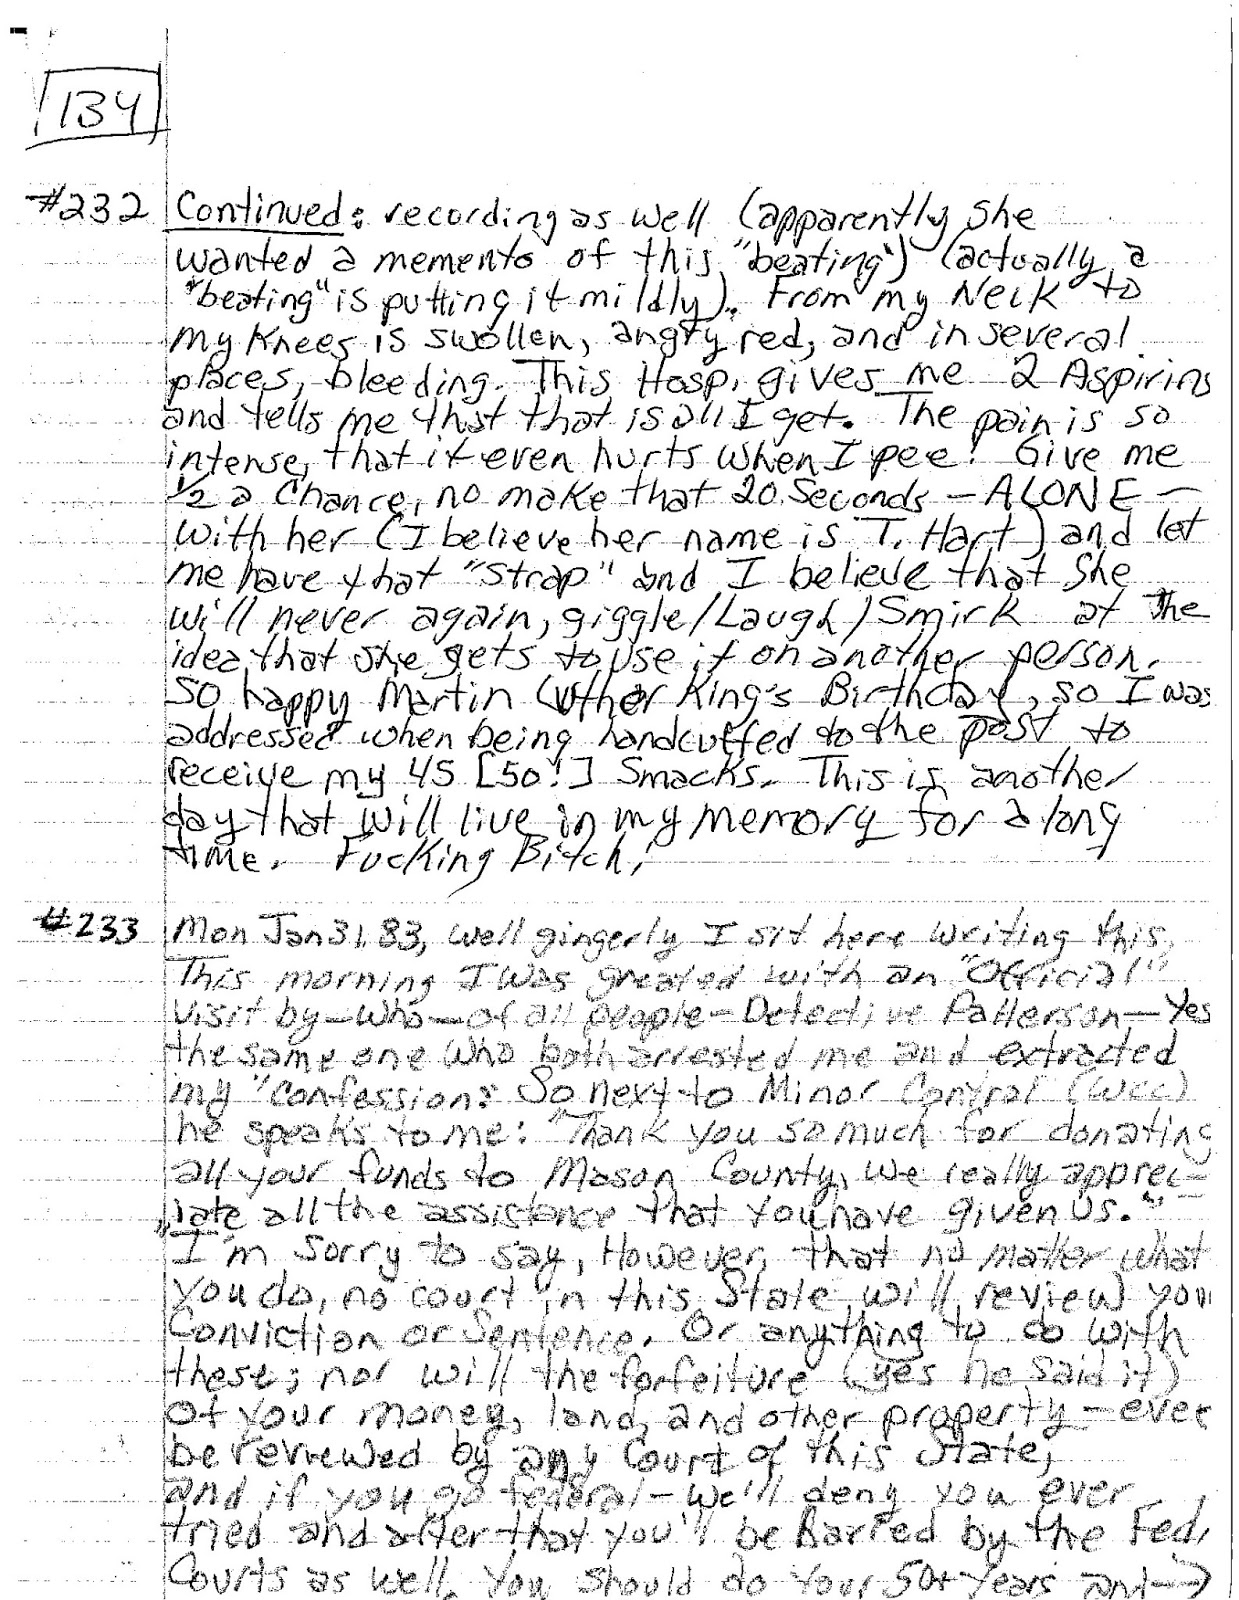 134
#232 Continued: recording as well (apparently she
wanted a memento of this "beating") (actually a
"beating" is putting it mildly). From my Neck to
my Knees is swollen, angry red, and in several
places, bleeding. This Hosp. gives me 2 Aspirins
and tells me that that is all I get. The pain is so
intense, that it even hurts when I pee! Give me
1/2 a Chance, no make that 20 Seconds - ALONE -
with her (I believe her name is T. Hart) and let
me have that "strap" and I believe that she
will never again, giggle/Laugh/Smirk at the
idea that she gets to use it on another person.
So happy Martin Luther King's Birthday, so I was
addressed when being handcuffed to the post to
receive my 45 [50!] Smacks. This is another
day that will live in my memory for a long
time. Fucking Bitch!
#233 Mon Jan 31, 83, well gingerly I sit here writing this.
This morning I was greated with an "Official"
visit by - who - of all people - Detective Patterson - Yes
the same one who both arrested me and extracted
my "Confession: So next to Minor Control (WCC)
he speaks to me: "Thank you so much for donating
all your funds to Mason County, we really apprec-
iate all the assistance that you have given us."
"I'm sorry to say, However, that no matter what
you do, no court in this State will review you
Conviction or Sentence. Or anything to do with
these; nor will the forfeiture (yes he said it)
of your money, land, and other property - ever
be reviewed by any Court of this State,
and if you go federal - we'll deny you ever
tried and after that you'll be Barred by the Fed.
Courts as well. You should do Your 50+ years and →